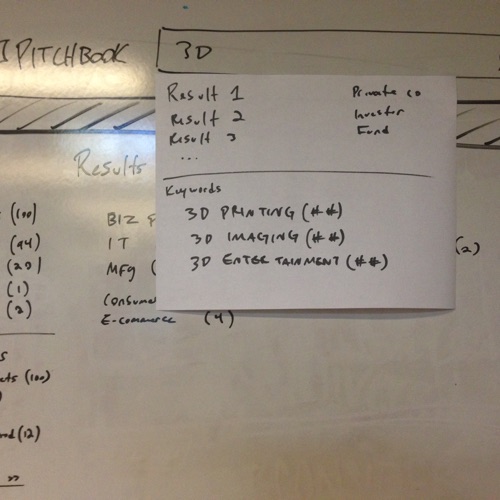 PITCHBOOK
3D
Result 1 Private co
Result 2 Investor
Result 3 Fund
...
Keywords
3D PRINTING (##)
3D IMAGING (##)
3D ENTERTAINMENT (##)
Results
(100)
(94)
(20)
(1)
(2)
BIZ
IT
MFG (
(2)
E-commerce (4)
(100)
(12)